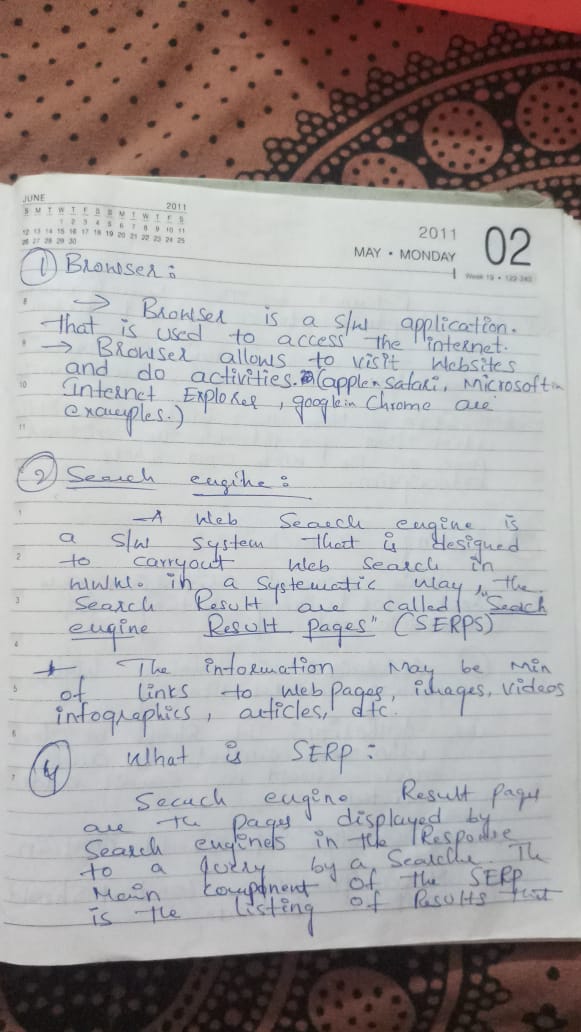 JUNE
2011
S M T W T F S S M T W T F S
1 2 3 4 5 6 7 8 9 10 11
12 13 14 15 16 17 18 19 20 21 22 23 24 25
26 27 28 29 30
2011
MAY • MONDAY
02
Week 19 • 122-243
① Browser :
8
→ Browser is a s/w application.
that is used to access the internet.
9
→ Browser allows to visit websites
and do activities. (apple in safari, Microsoft in
10
Internet Explorer, google in Chrome are
examples.)
11
② Search engine :
1
→ A Web Search engine is
a s/w system that is designed
2
to carryout web search in
www. in a systematic way, the
3
Search Result are called "Seach
engine Result pages" (SERPS)
4
→ The information May be Mix
5
of links to web pages, images, videos
infographics, articles, etc.
6
④ What is SERP :
7
Search engine Result pages
are the pages displayed by
Search engines in the Response
to a query by a Searche. The
Main component of the SERP
is the listing of Results that